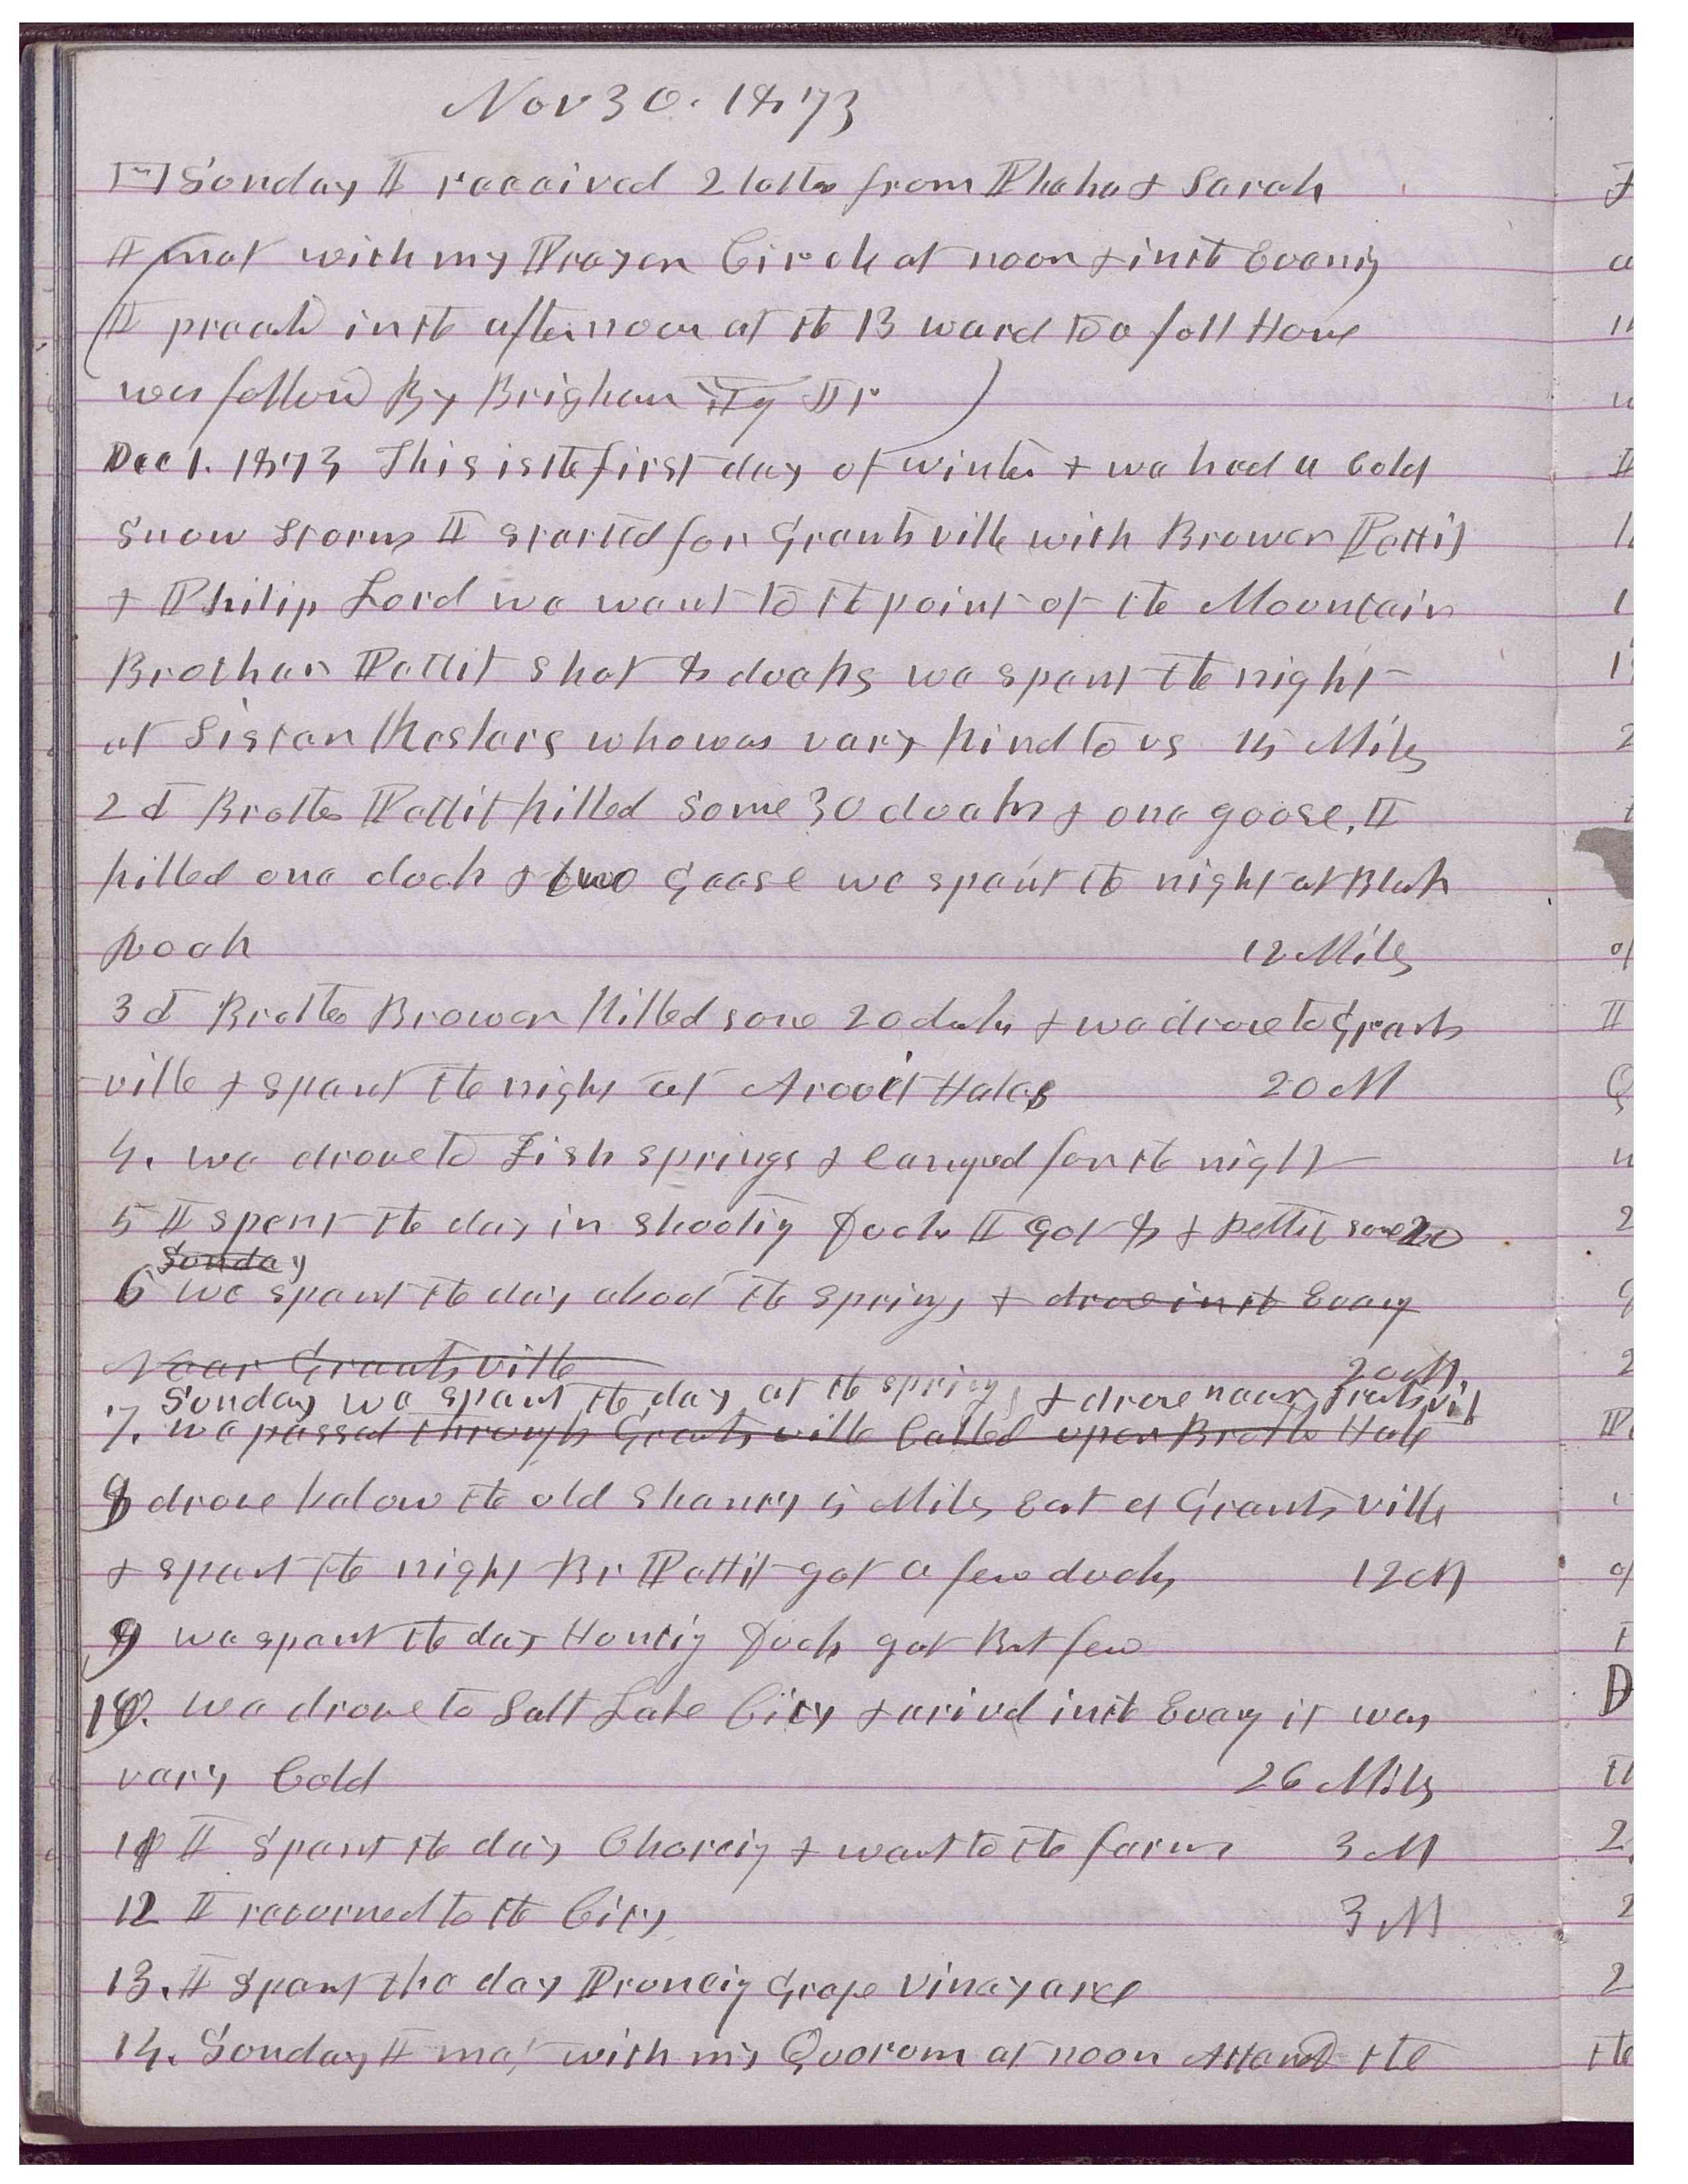 Nov 30. 1873
Sunday I received 2 letters from Phebe & Sarah
I met with my Prayer Circle at noon & in the Evening
(I preachd in the afternoon at the 13 ward to a full House
was followd By Brigham Yg Jr )
Dec 1. 1873 This is the first day of winter & we had a Cold
Snow Storm I started for Grantsville with Brower Pettit
& Philip Lord we went to the point of the Mountain
Brother Pettit shot 8 ducks we spent the night
at Sister Keslers who was very kind to us 15 Miles
2d Brother Pettit killed some 30 ducks & one goose, I
killed one duck & two Geese we spent the night at Black
Rock 12 Miles
3d Brother Brower killed some 20 ducks & we drove to Grants
ville & spent the night at Aroett Hales 20 M
4. we drove to Fish springs & camped for the night
5 I spent the day in shooting Ducks I got 8 & Pettit some 20
Sunday
6 we spent the day about the springs & drove in the Eveng
Near Grantsville 20 M.
Sunday we spent the day at the springs & drove near Grantsvil
7. we passed through Grantsville Called upon Brother Hale
8 drove below the old shanty 5 Miles East of Grantsville
& spent the night Br Pettit got a few ducks 12 M
9 we spent the day Hunting Duck got But few
10. we drove to Salt Lake City & arivd in the Eveng it was
very Cold 26 Miles
11 I spent the day Choreing & went to the farm 3 M
12 I returned to the City 3 M
13. I spent the day Pruning Grape Vinayard
14. Sunday I met with my Quorum at noon Attend the